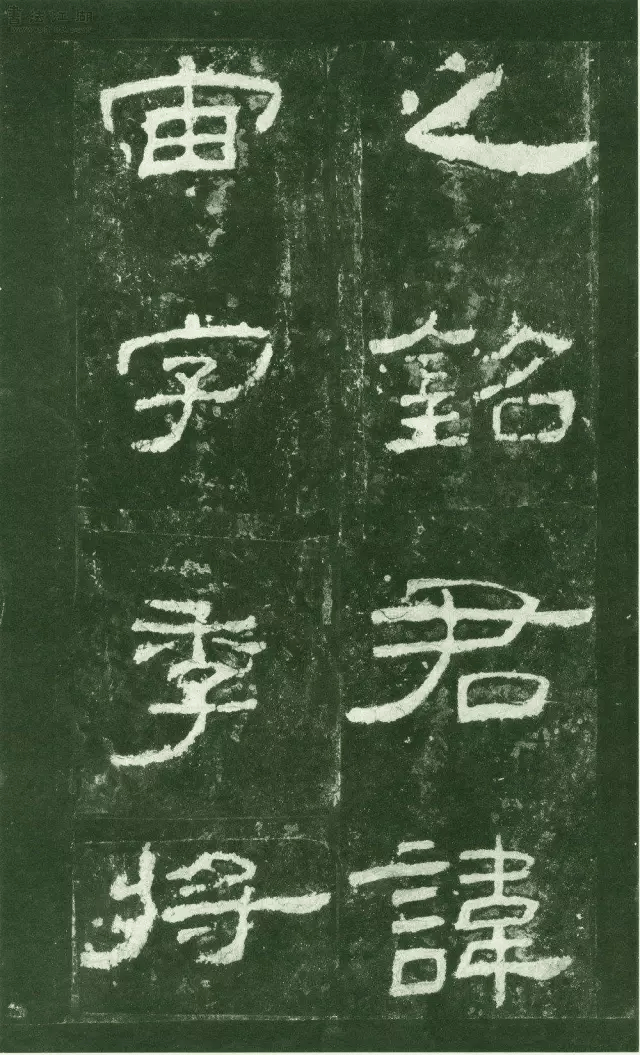 之銘君諱
宙字季將